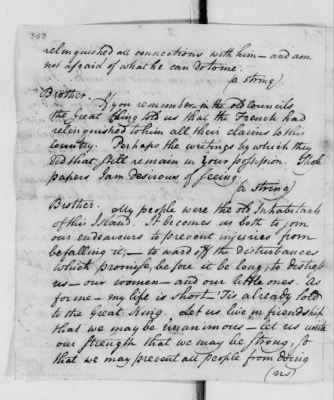 relinquished all connections with him — and am
not afraid of what he can do to me.
(a string)
Brother. If you remember in the old Councils
the Great King told us that the French had
relinquished to him all their claims to this
Country. Perhaps the writings by which they
did that still remain in your possession. Those
papers I am desirous of seeing.
(a string)
Brother. My people were the old Inhabitants
of this Island. It becomes us both to join
our endeavours to prevent injuries from
befalling it; — to ward off the Disturbances
which promise, before it be long, to distress
us — our women — and our little ones. As
for me — my life is short — 'Tis already told
to the Great King. Let us live in friendship
that we may be unanimous — let us unite
our strength that we may be strong, so
that we may prevent all people from doing
(us)